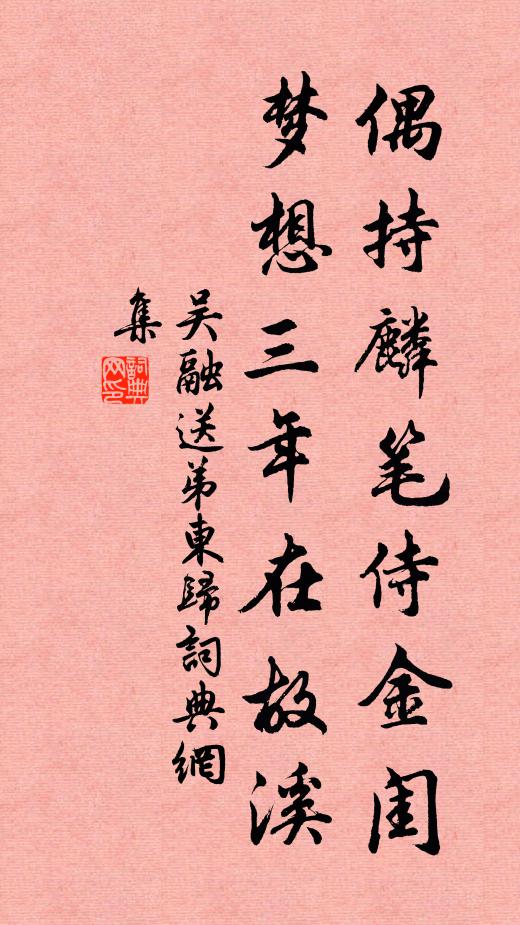 偶持麟笔侍金闺
梦想三年在故溪
吴融送弟東歸詞典網
集
詞典
网印